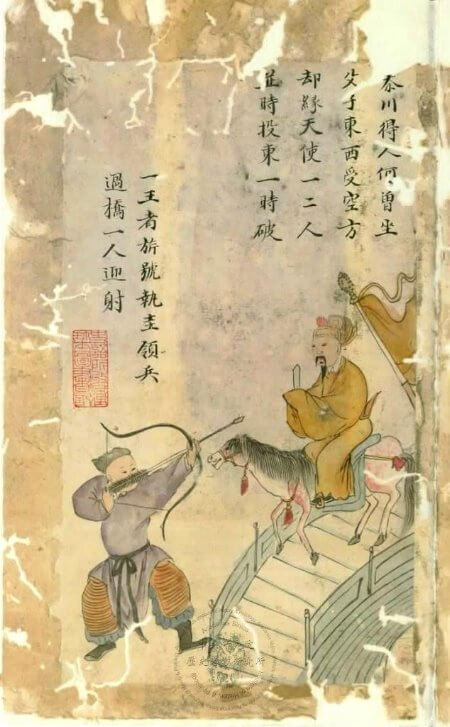 川得人何曾坐
父子東西受空方
却緣天使一二人
時投東一時破
一王者旂號執圭領兵
過橋一人迎射